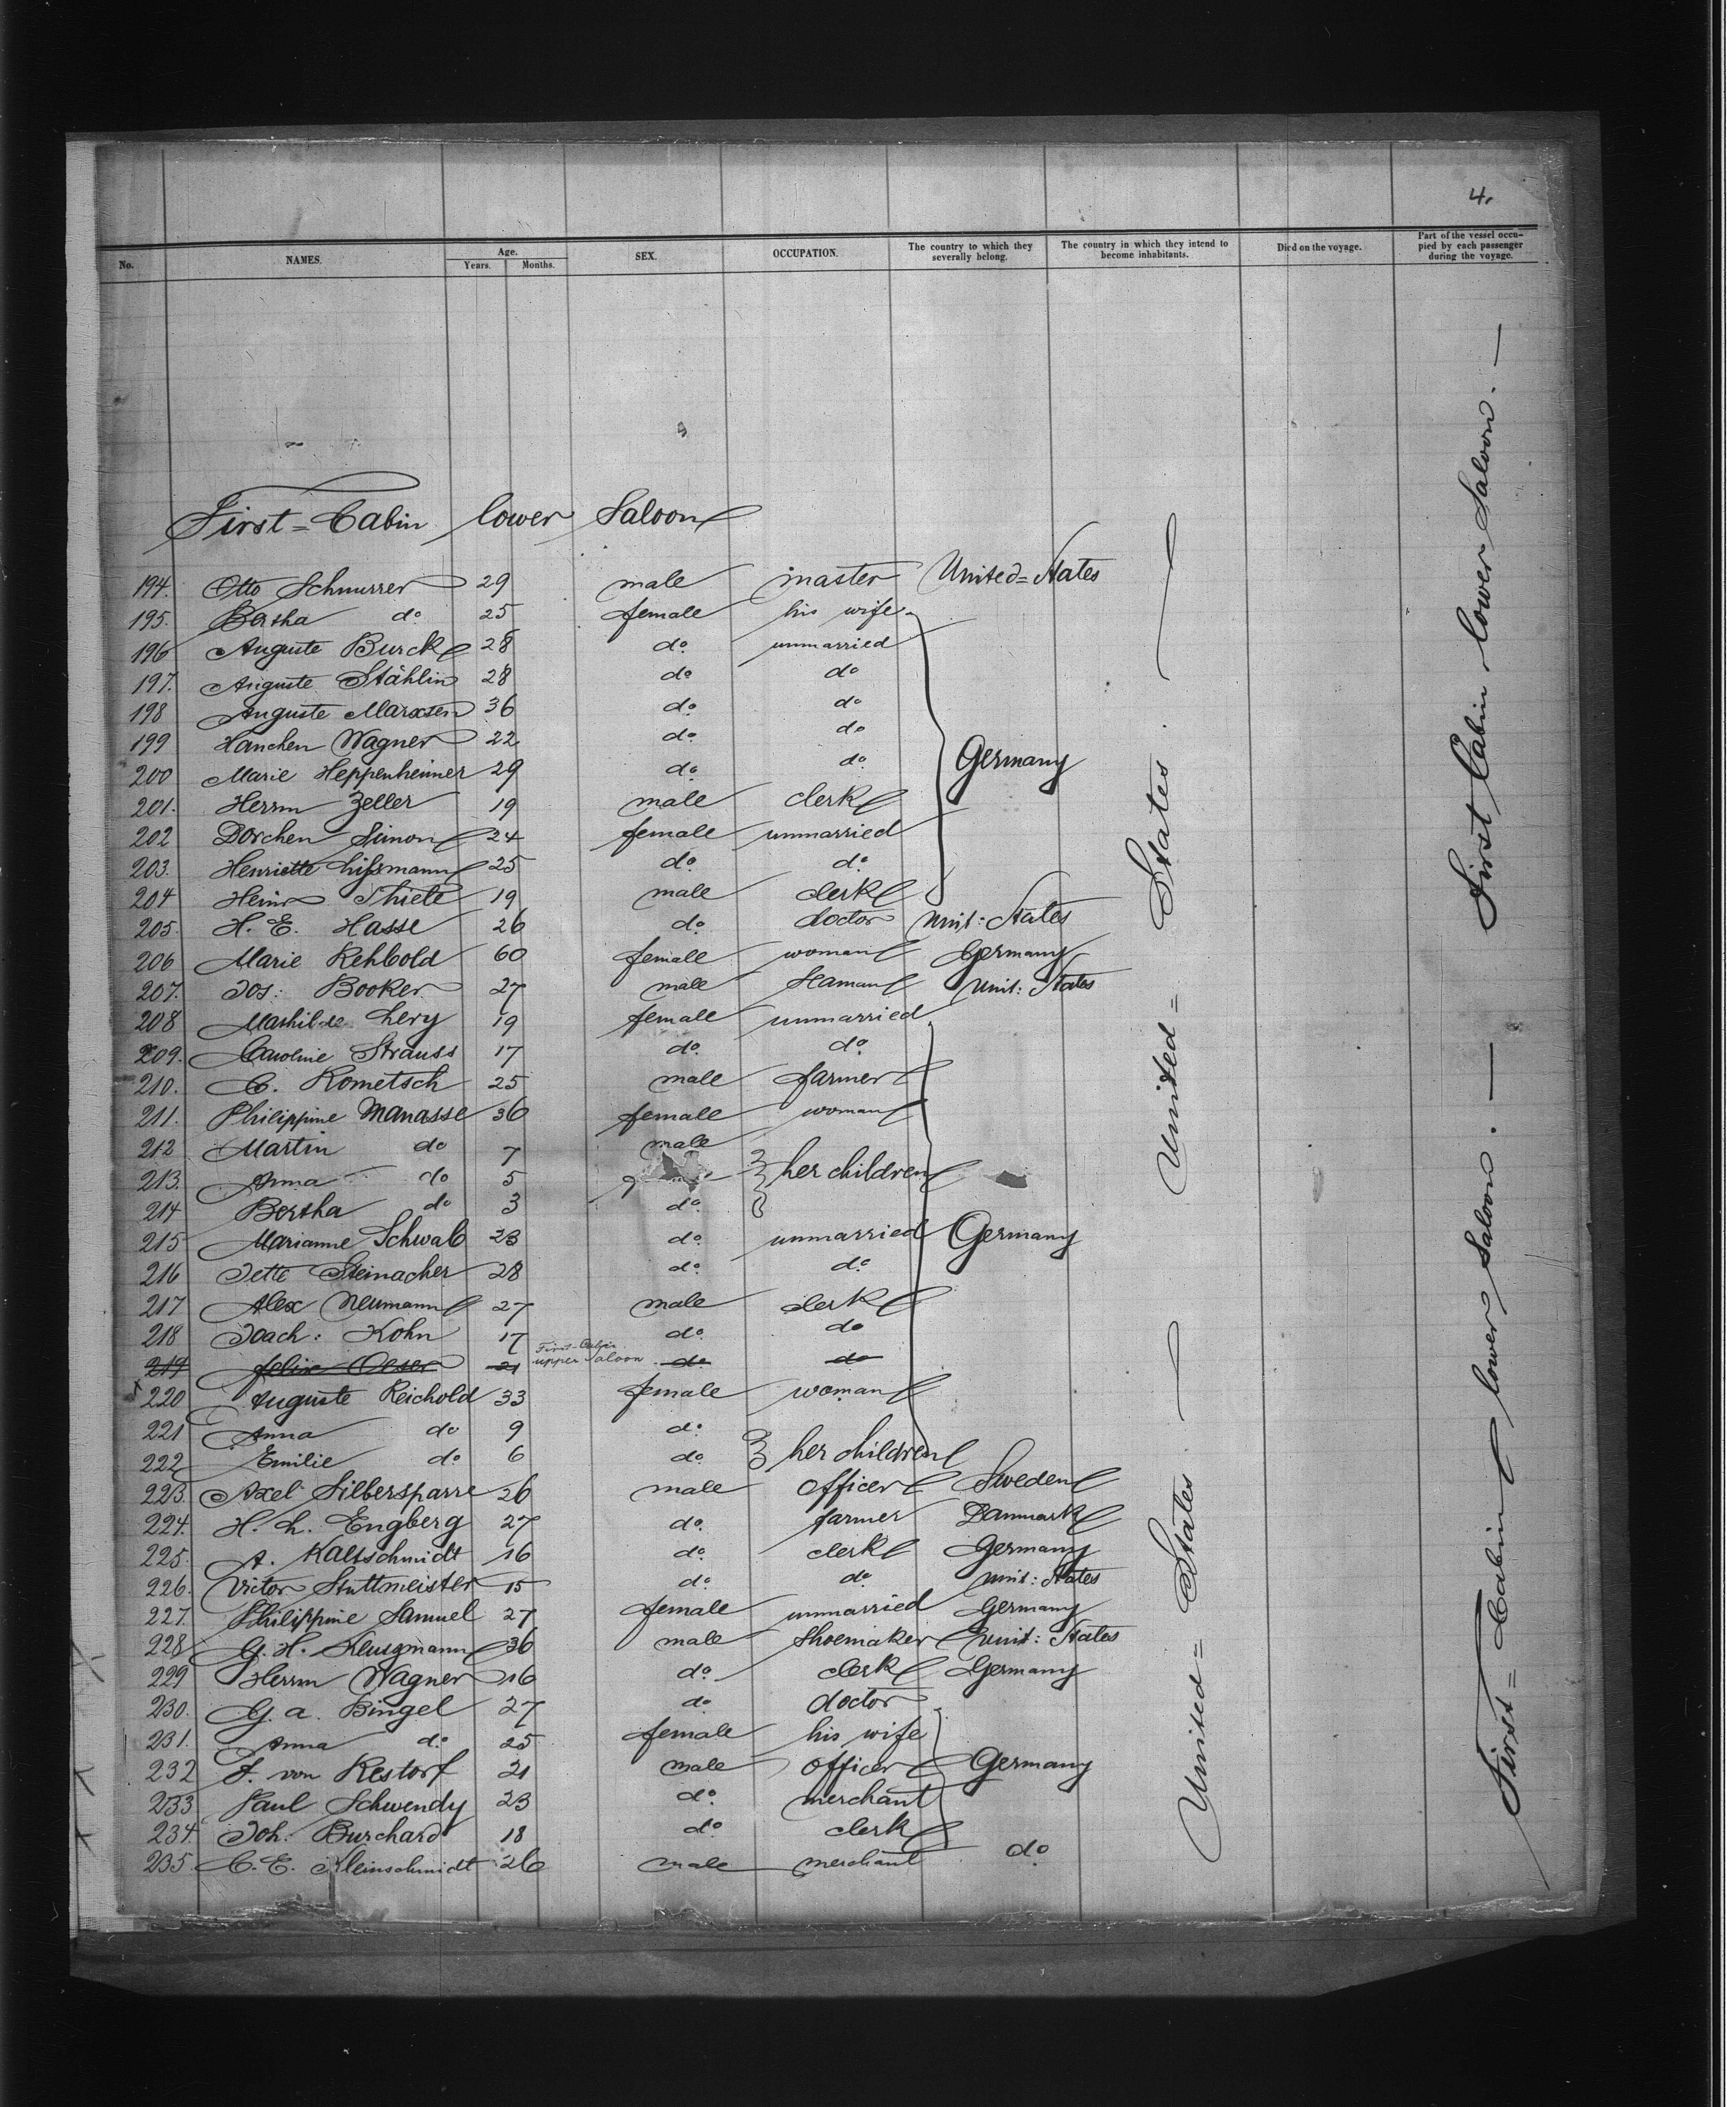 4.
No. NAMES. Age. Years. Months. SEX. OCCUPATION. The country to which they severally belong. The country in which they intend to become inhabitants. Died on the voyage. Part of the vessel occupied by each passenger during the voyage.
First=Cabin lower Saloon
194. Otto Schnurrer 29 male master United=States
195. Bertha do 25 female his wife
196 Auguste Burck 28 do. unmarried
197. Auguste Stählin 28 do do
198 Auguste Marxsen 36 do. do
199 Hanchen Wagner 22 do. do
200 Marie Heppenheimer 29 do. do. Germany
201. Herrm Zeller 19 male clerk
202 Dorchen Simon 24 female unmarried
203. Henriette Lissmann 25 do. do.
204 Heinr Thiele 19 male clerk
205. H. E. Hasse 26 do. doctor Unit: States
206 Marie Rehbold 60 female woman Germany
207. Jos: Booker 27 male Unit: States
208 Mathilde Levy 19 female unmarried
209. Caroline Strauss 17 do. do.
210. C. Kometsch 25 male farmer
211. Philippine Manasse 36 female woman
212 Martin do 7 male
213. Anna do 5 her children
214 Bertha do 3 do.
215 Marianne Schwab 23 do. unmarried Germany
216 Jette Steinacher 28 do. do.
217 Alex Neumann 27 male clerk
218 Joach: Kohn 17 do. do
219 Felix Oeser 21 First-Cabin upper Saloon do. do
220 Auguste Reichold 33 female woman
221 Anna do 9 do.
222 Emilie do. 6 do. her children
223. Axel Silbersparre 26 male officer Sweden
224. H. L. Engberg 27 do. farmer Danmark
225. A. Kaltschmidt 16 do. clerk Germany
226. Victor Stuttmeister 15 do. do. Unit: States
227. Philippine Samuel 27 female unmarried Germany
228 G. H. 36 male Shoemaker Unit: States
229 Herrm Wagner 16 do. clerk Germany
230. G. a. Bingel 27 do. doctor
231. Anna do. 25 female his wife
232 F. von Restorf 21 male officer Germany
233 Paul Schwendy 23 do. merchant
234. Joh. Burchard 18 do. clerk
235. C. E. Kleinschmidt 26 male merchant do.
United = States
United = States
First Cabin lower Saloon.
First = Cabin lower Saloon.